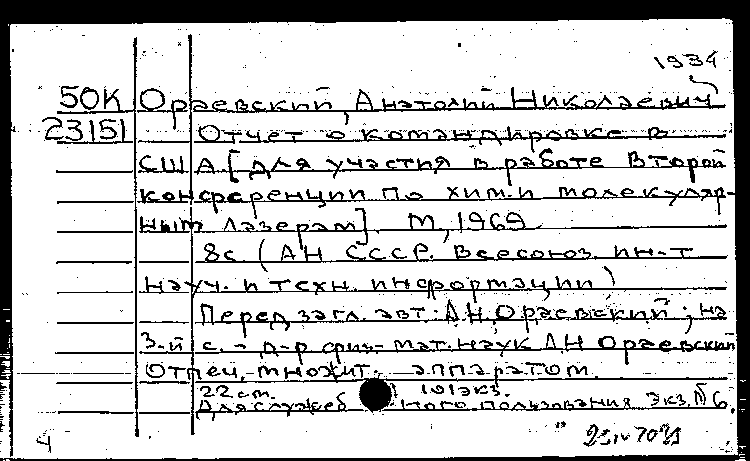 1934
50К Ораевский, Анатолий Николаевич
23151 Отчет о командировке в
США [для участия в работе Второй
конференции по хим. и молекуляр-
ным лазерам]. М., 1969
8с (АН СССР. Всесоюз. ин-т
науч. и техн. информации)
Перед загл. авт.: А.Н. Ораевский; на
3-й с. - д-р физ-мат. наук А.Н Ораевский
Отпеч. множит. аппаратом.
22 см. 101 экз.
Для служеб ного пользования Экз. № 6.
4